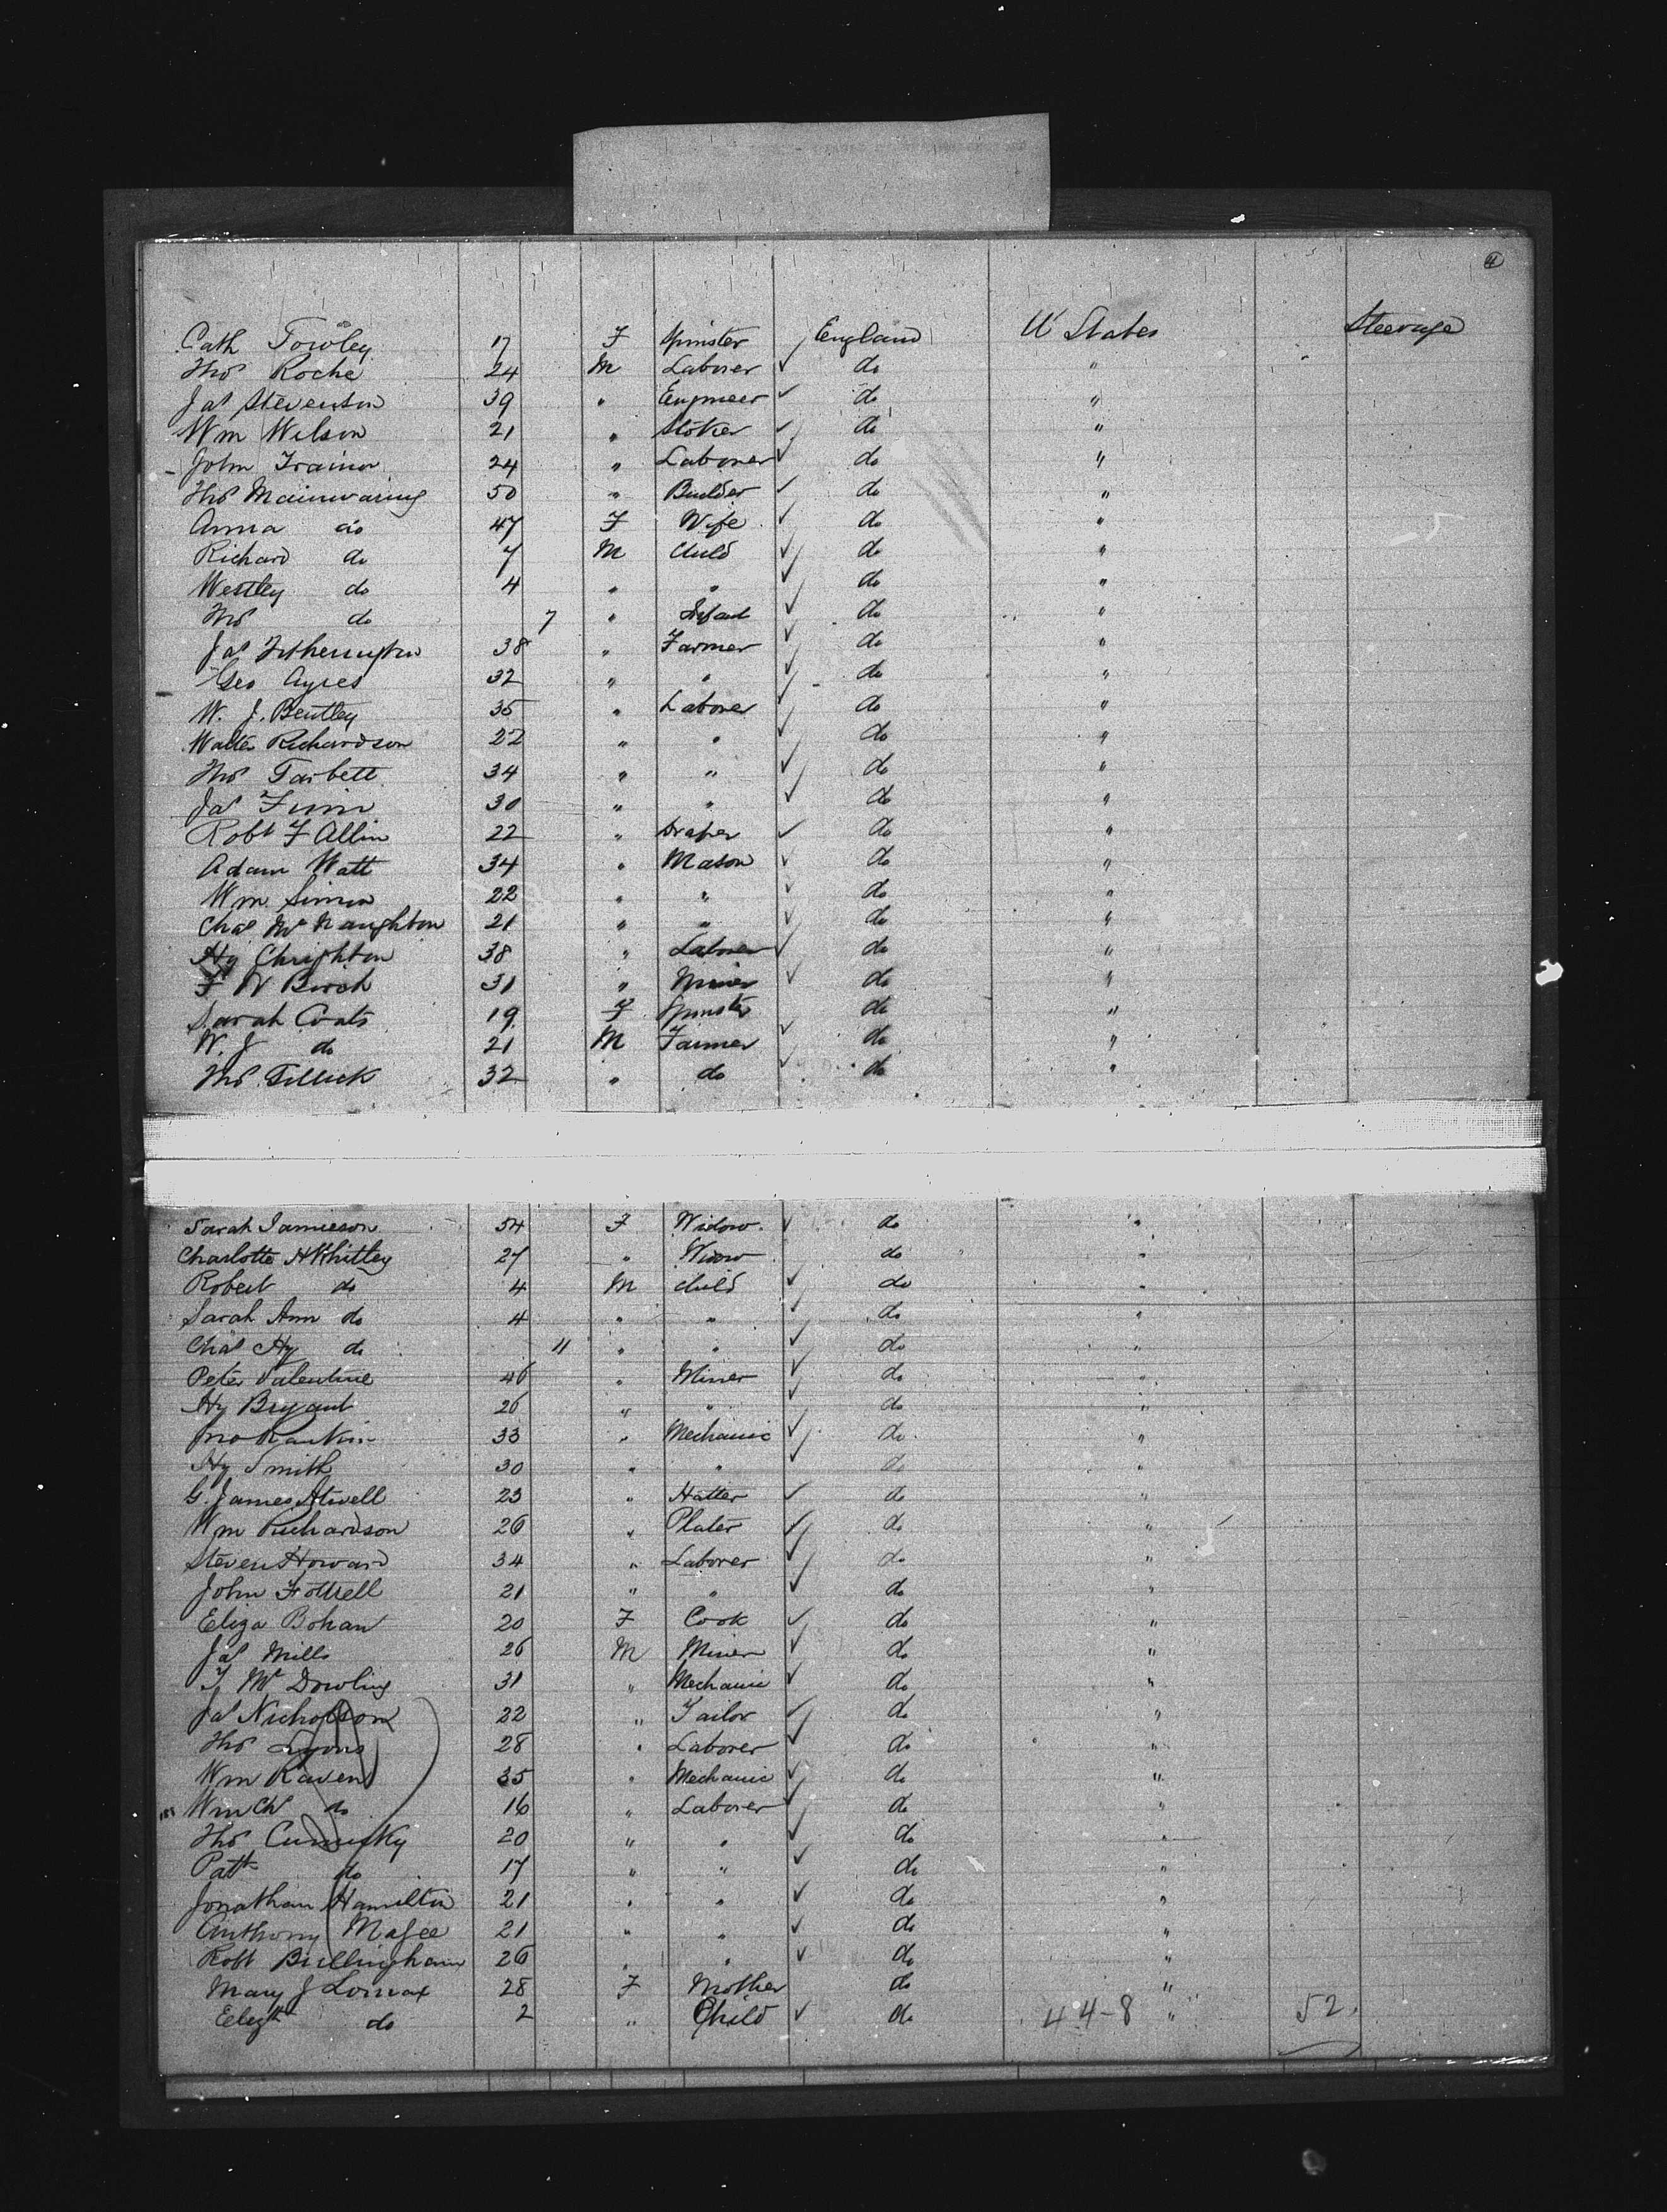 4
Cath Towley 17 F Spinster England U States Steerage
Thos Roche 24 M Laborer do "
Jas Stevenson 39 " Engineer do "
Wm Wilson 21 " Stoker do "
John Trainor 24 " Laborer do "
Thos Mainwaring 50 " Builder do "
Anna do 47 F Wife do "
Richard do 7 M Child do "
Westley do 4 " " do "
Thos do 7 " Infant do "
Jas 38 " Farmer do "
Geo Ayres 32 " " do "
W. J. Bentley 35 " Laborer do "
Walter Richardson 22 " " do "
Thos Tarbett 34 " " do "
Jas Finn 30 " " do "
Robt F Allin 22 " Draper do "
Adam Watt 34 " Mason do "
Wm Simon 22 " " do "
Chas McNaughton 21 " " do "
Hy Chrighton 38 " Laborer do "
F W Birch 31 " Miner do "
Sarah Coats 19 F Spinster do "
W. J do 21 M Farmer do "
Thos 32 " do do "
Sarah Jamieson 54 F Widow do "
Charlotte H Whitley 27 " do "
Robert do 4 M Child do "
Sarah Ann do 4 " " do "
Chas Hy do 11 " " do "
Peter Valentine 46 " Miner do "
Hy Bryant 26 " " do "
Jno Rankin 33 " Mechanic do "
Hy Smith 30 " " do "
G. James Atwell 23 " Hatter do "
Wm Richardson 26 " Plater do "
Steven Howard 34 " Laborer do "
John Fottrell 21 " " do "
Eliza Bohan 20 F Cook do "
Jas Mills 26 M Miner do "
T. Mc Dowling 31 " Mechanic do "
Jas Nicholson 22 " Tailor do "
Thos Lyons 28 " Laborer do "
Wm Raven 35 " Mechanic do "
Wm Ch do 16 " Laborer do "
Thos Cumisky 20 " " do "
Patk do 17 " " do "
Jonathan Hamilton 21 " " do "
Anthony Magee 21 " " do "
Robt Bullingham 26 " " do "
Mary J Lomax 28 F Mother do "
Elizth do 2 " Child do 44-8 " 52.